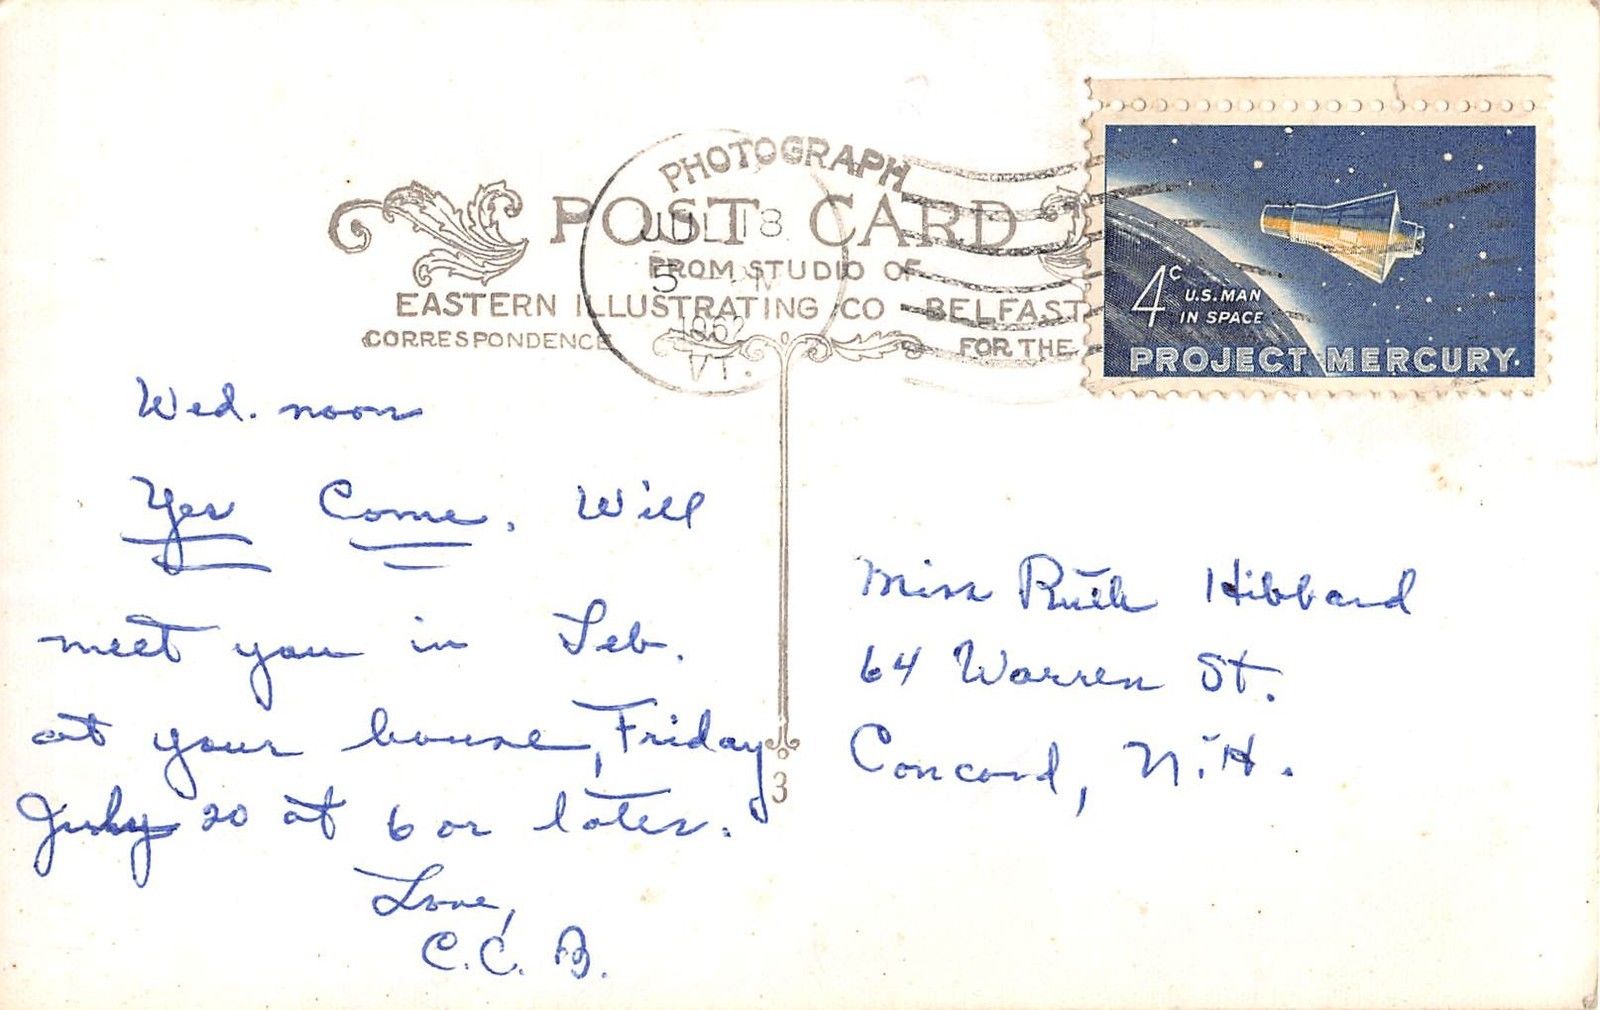 PHOTOGRAPH
POST CARD
FROM STUDIO OF
EASTERN ILLUSTRATING CO BELFAST
CORRESPONDENCE
FOR THE
JUL 18
5 M
1962
VT.
4c U.S. MAN
IN SPACE
PROJECT MERCURY
Wed. noon
Yes Come. Will
meet you in Leb.
at your house, Friday
July 20 at 6 or later.
Love,
C.C.B.
3
Miss Ruth Hibbard
64 Warren St.
Concord, N.H.